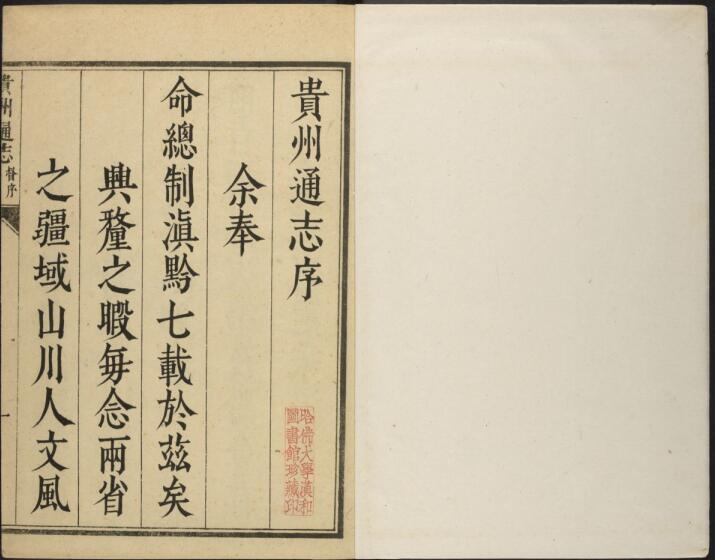 貴州通志序
余奉
命總制滇黔七載於茲矣
興釐之暇每念兩省
之疆域山川人文風
貴州通志
督序
一
哈佛大學漢和
圖書館珍藏印